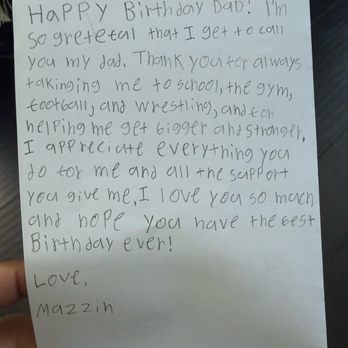 HaPPY Birthday DaD! I'm
so gretetal that I get to call
you my dad. Thank you for always
takinging me to school, the gym,
football, and wrestling, and for
helping me get bigger and stronger.
I appreciate everything you
do for me and all the support
you give me. I love you so much
and hope you have the best
Birthday ever!
Love,
Mazzin